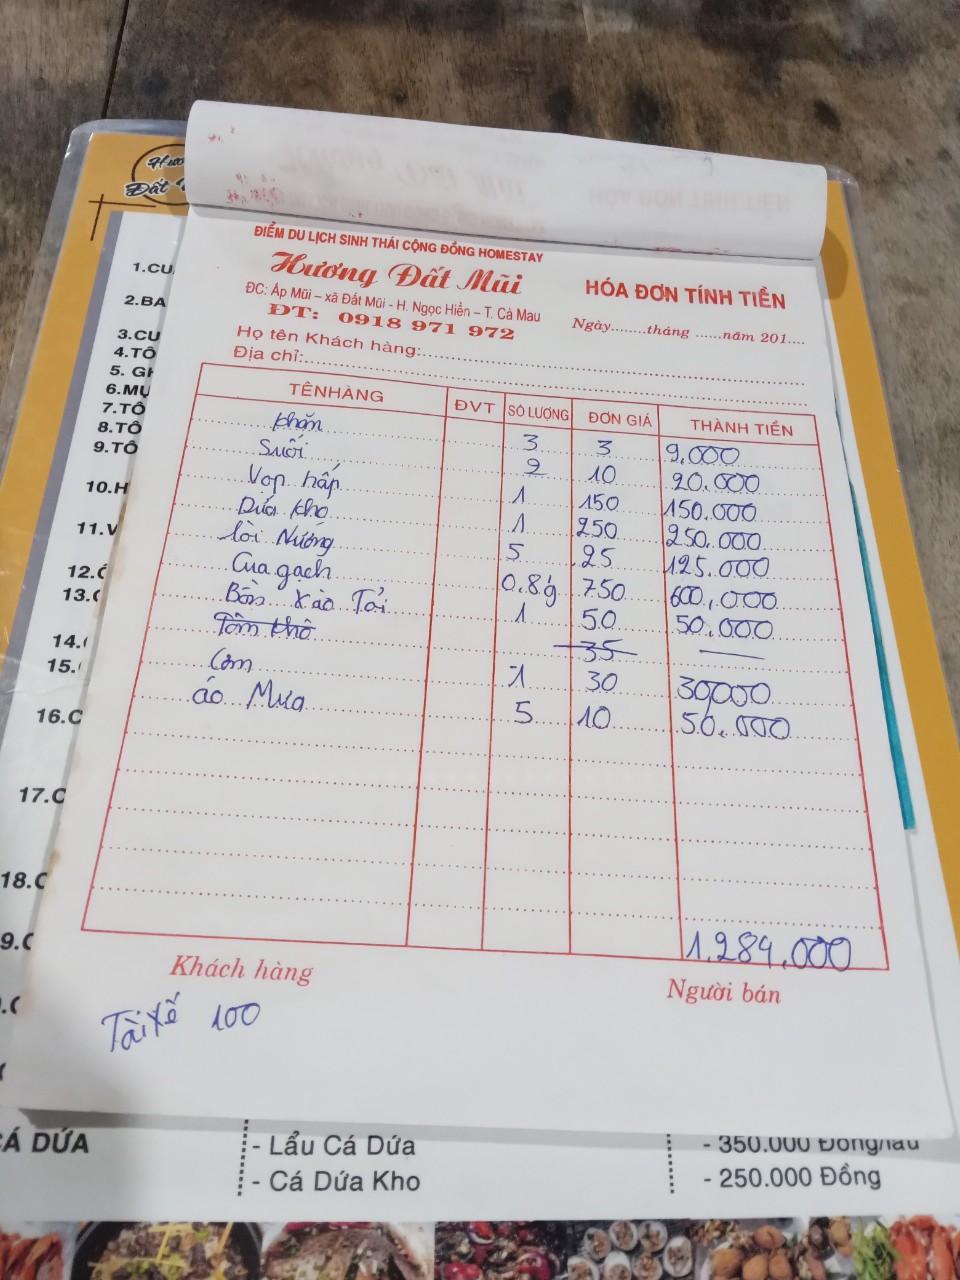 Đất
ĐIỂM DU LỊCH SINH THÁI CỘNG ĐỒNG HOMESTAY
Hương Đất Mũi
ĐC: Ấp Mũi – xã Đất Mũi - H. Ngọc Hiển – T. Cà Mau
ĐT: 0918 971 972
HÓA ĐƠN TÍNH TIỀN
Ngày........tháng ......năm 201....
Họ tên Khách hàng:
Địa chỉ:
TÊN HÀNG ĐVT SỐ LƯỢNG ĐƠN GIÁ THÀNH TIỀN
Khăn 3 3 9.000
Suối 2 10 20.000
Vọp hấp 1 150 150.000
Dứa kho 1 250 250.000
lòi Nướng 5 25 125.000
Cua gạch 0.8g 750 600.000
Bồn xào Tỏi 1 50 50.000
Tôm khô 35
Cơm 1 30 30,000
áo Mưa 5 10 50.000
1.284.000
Khách hàng
Người bán
Tài xế 100
1.CU
2.BA
3.CU
4.TÔ
5. GH
6.MỰ
7.TÔ
8.TÔ
9.TÔ
10.H
11.V
12.
13.
14.
15.
16.C
17.C
18.C
CÁ DỨA
- Lẩu Cá Dứa - 350.000 Đồng/lẩu
- Cá Dứa Kho - 250.000 Đồng